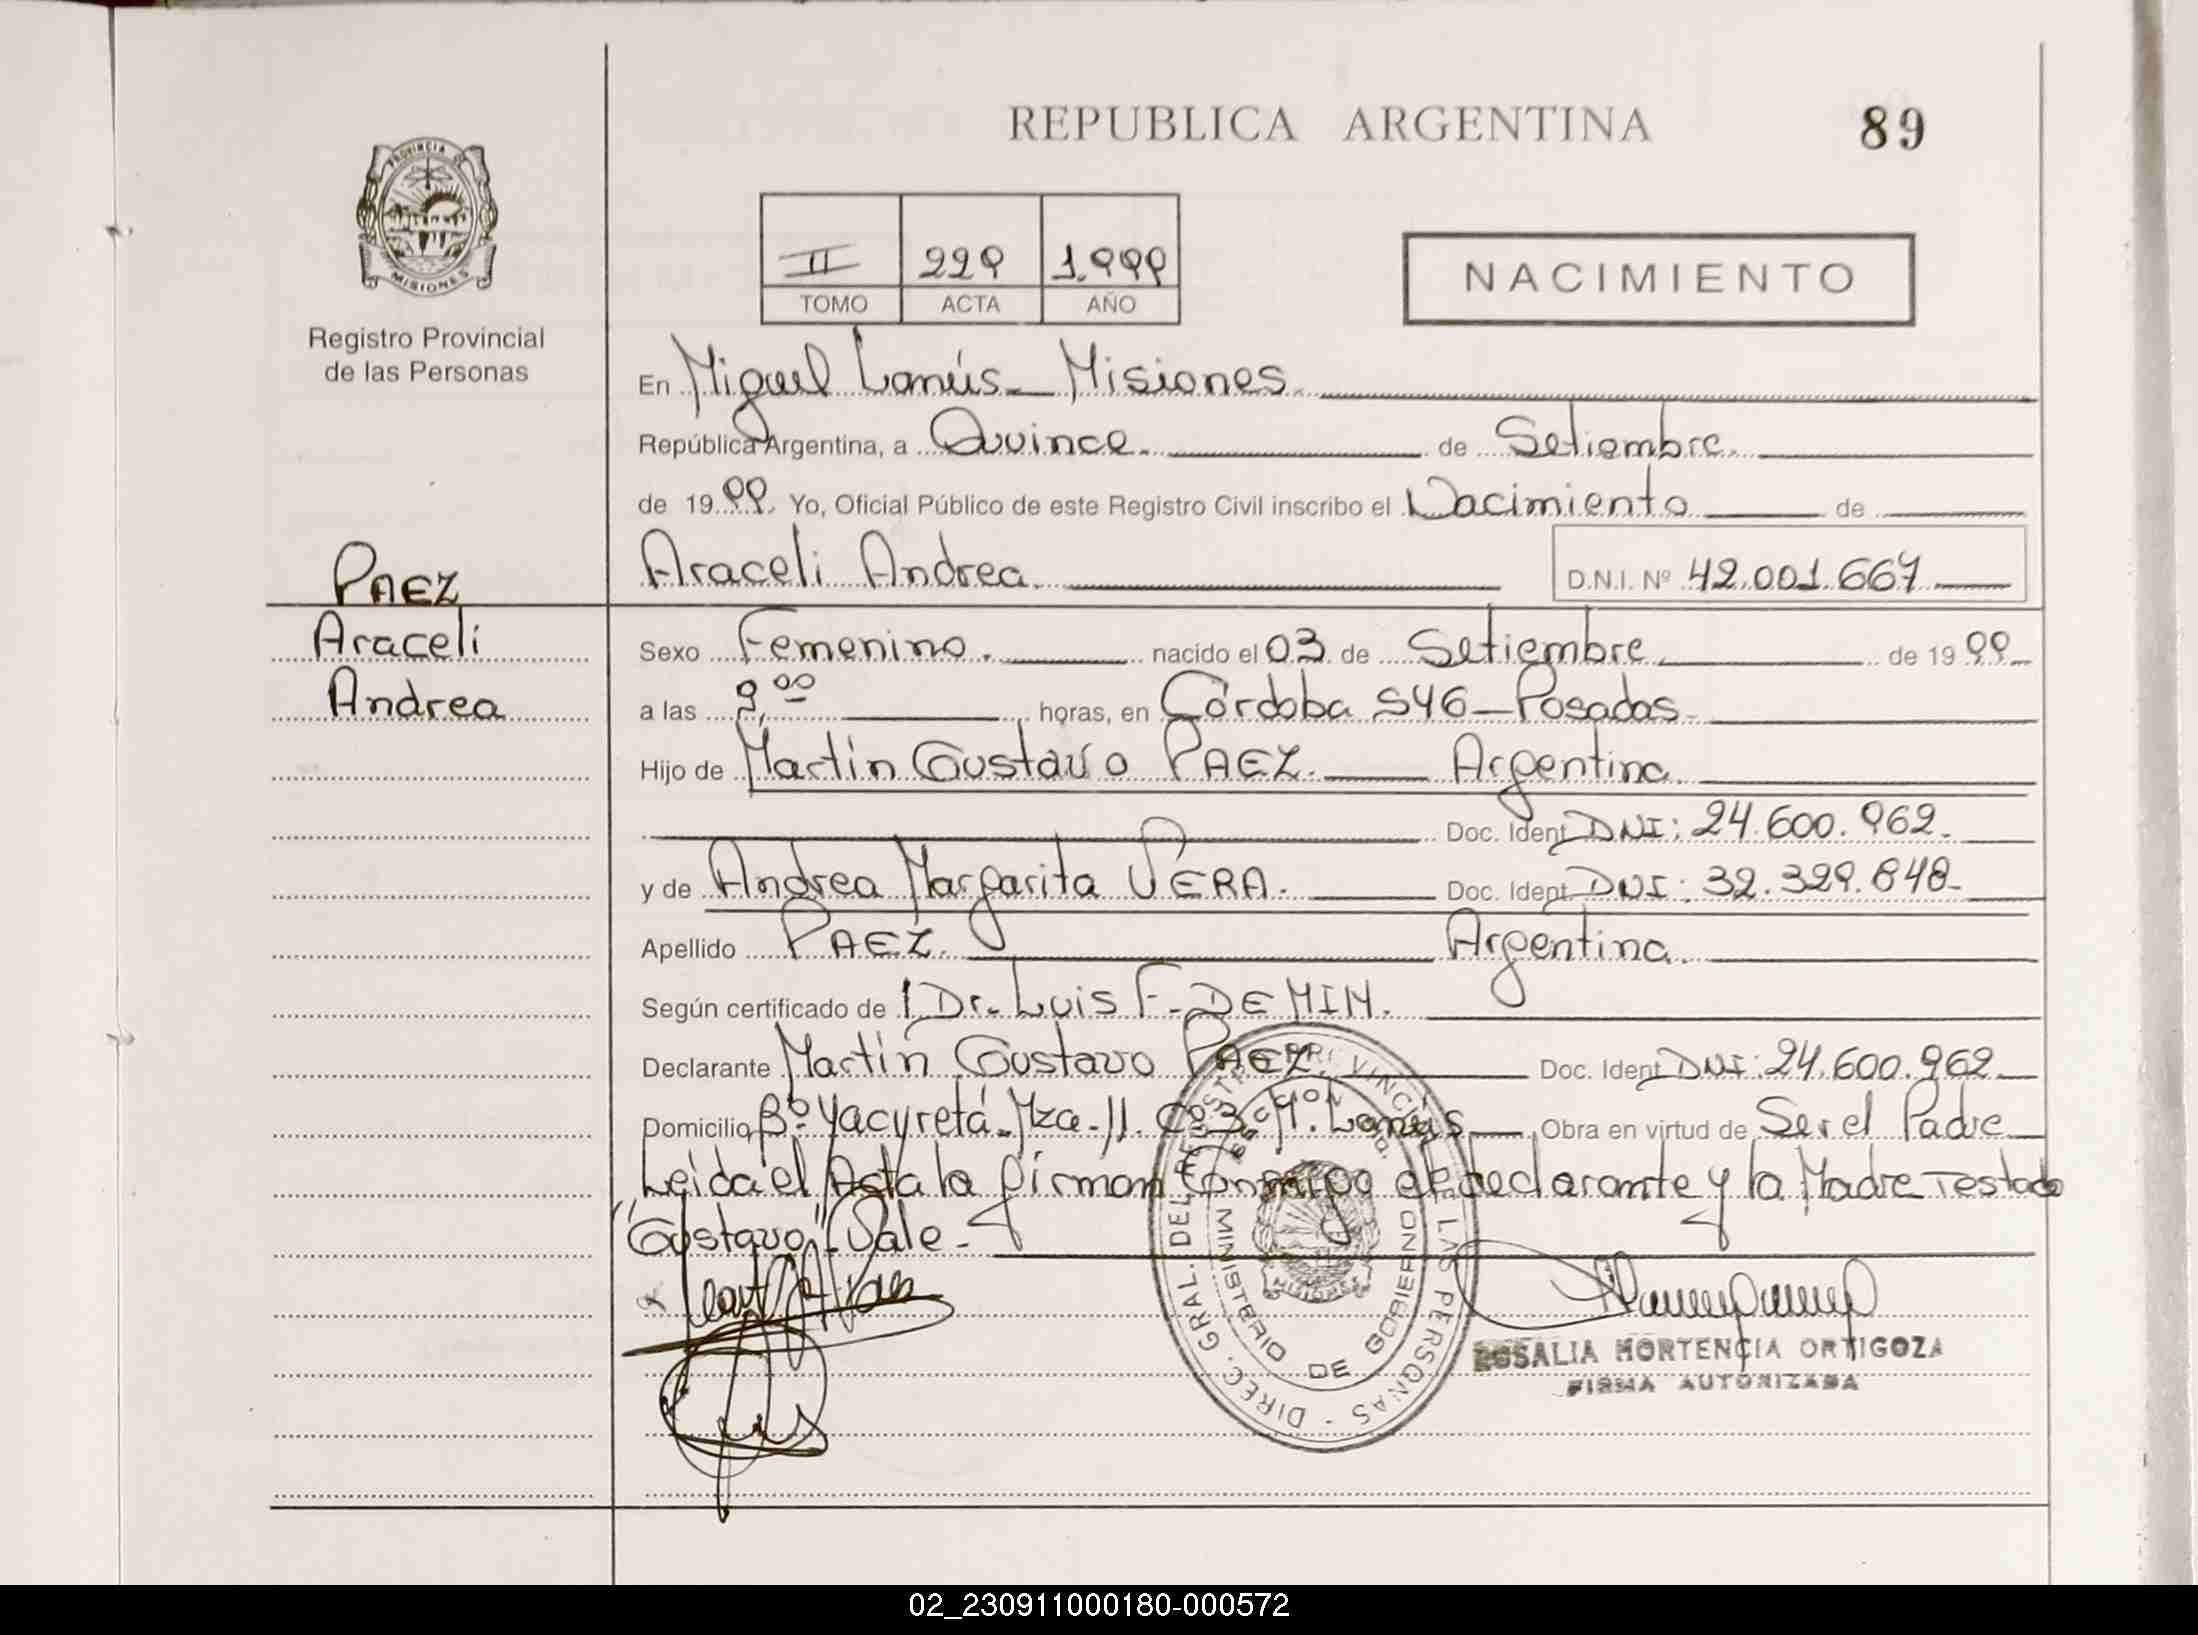 REPUBLICA ARGENTINA
89
PROVINCIA DE
MISIONES
Registro Provincial
de las Personas
II 229 1.999
TOMO ACTA AÑO
NACIMIENTO
En Miguel Lanús - Misiones.
República Argentina, a Quince. de Setiembre.
de 1999. Yo, Oficial Público de este Registro Civil inscribo el Nacimiento de
Araceli Andrea. D.N.I. Nº 42.001.667
PAEZ
Araceli
Andrea
Sexo Femenino. nacido el 03 de Setiembre de 1999
a las 9,00 horas, en Córdoba 546 - Posadas
Hijo de Martín Gustavo PAEZ. Argentina.
Doc. Ident DNI: 24.600.962.
y de Andrea Margarita VERA. Doc. Ident DNI: 32.329.848-
Apellido PAEZ. Argentina.
Según certificado de Dr. Luis F. DEMIM.
Declarante Martín Gustavo PAEZ. Doc. Ident DNI: 24.600.962
Domicilio Bº Yacyretá - Mza - 11. Cº 3. M. Lanús Obra en virtud de Ser el Padre
Leida el Acta la firman Conmigo el declarante y la Madre Testado
"Gustavo" Vale -
DIREC. GRAL. DEL REGISTRO PROVINCIAL DE LAS PERSONAS -
MINISTERIO DE GOBIERNO
ROSALIA HORTENCIA ORTIGOZA
FIRMA AUTORIZADA
02_230911000180-000572